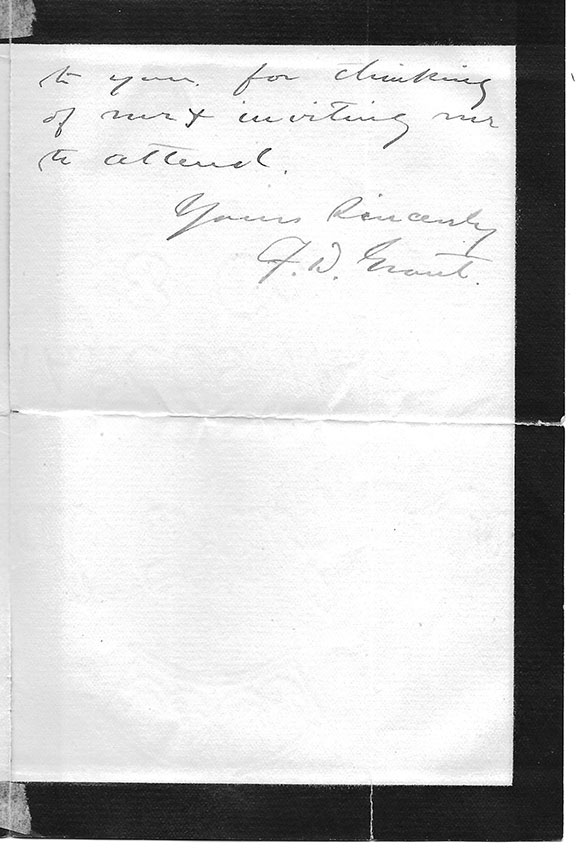 to you. for thinking
of me & inviting me
to attend.
Yours Sincerely
F. D. Grant.